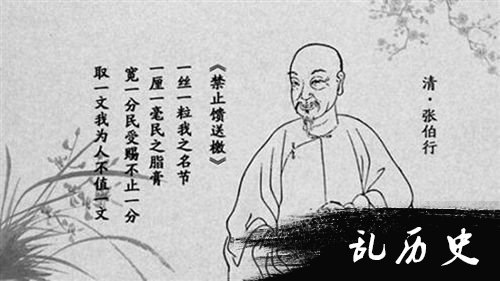 清·张伯行
《禁止馈送檄》
一丝一粒我之名节
一厘一毫民之脂膏
宽一分民受赐不止一分
取一文我为人不值一文
乱历史